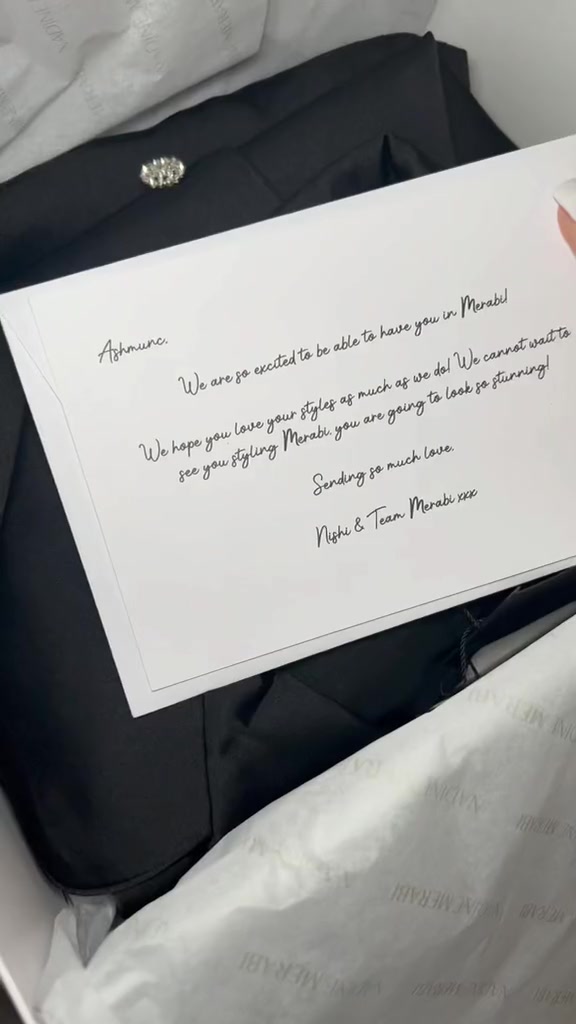 NADINE MERABI
Ashmunc.
We are so excited to be able to have you in Merabi!
We hope you love your styles as much as we do! We cannot wait to
see you styling Merabi, you are going to look so stunning!
Sending so much love.
Nishi & Team Merabi xxx
NADINE MERABI
NADINE MERABI
MERABI
MERABI
NADINE MERABI
MERABI
NADINE MERABI